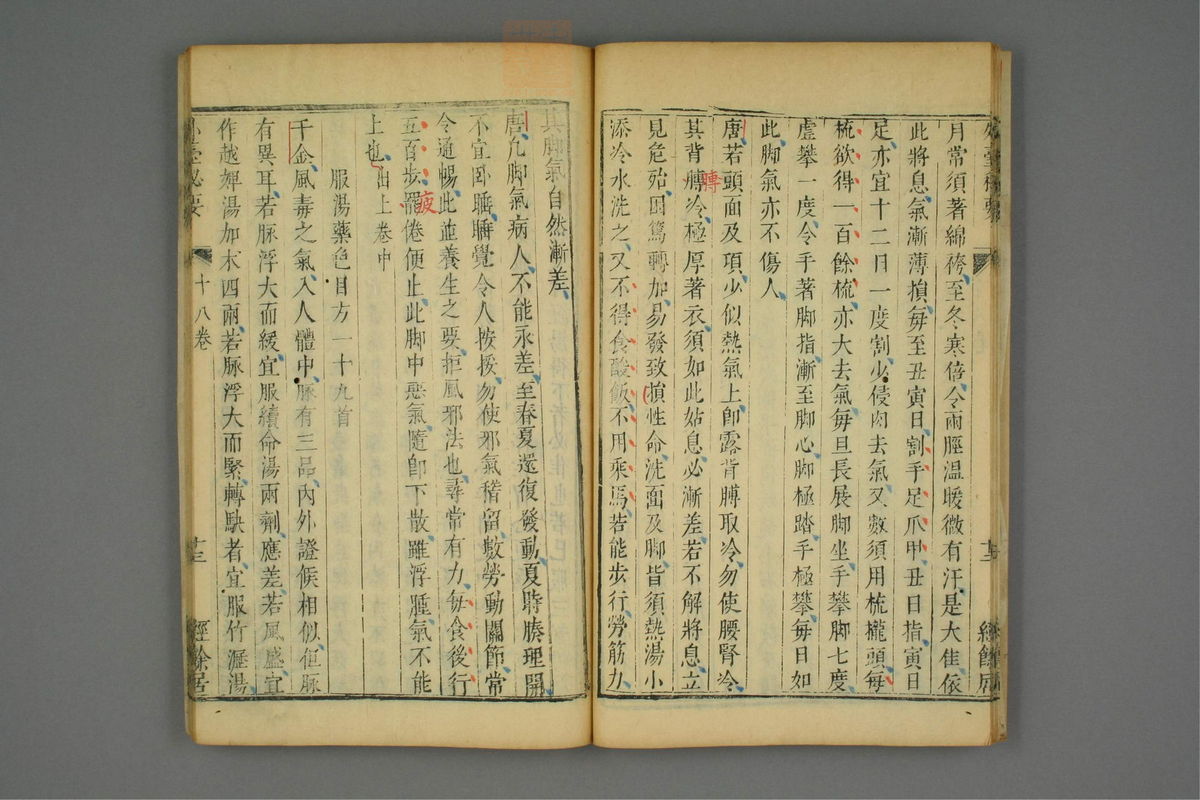 月常須著綿袴至冬寒倍令兩脛溫暖微有汗是大佳依
此將息氣漸薄損每至丑寅日割手足爪甲丑日指寅日
足亦宜十二日一度割少侵肉去氣又數須用梳攏頭每
梳欲得一百餘梳亦大去氣每旦長展脚坐手攀脚七度
虛攀一度令手著脚指漸至脚心脚極踏手極攀每日如
此脚氣亦不傷人
唐若頭面及項少似熱氣上卽露背膊取冷勿使腰腎冷
其背膊冷極厚著衣須如此姑息必漸差若不解將息立
膊
見危殆困篤轉加易發致損性命洗面及脚皆須熱湯小
添冷水洗之又不得食酸飯不用乘馬若能步行勞筋力
其脚氣自然漸差
唐凡脚氣病人不能永差至春夏還復發動夏時腠理開
不宜臥睡睡覺令人按挼勿使邪氣稽留數勞動關節常
令通暢此並養生之要拒風邪法也尋常有力每食後行
五百步罷倦便止此脚中惡氣隨卽下散雖浮腫氣不能
疲
上也出上卷中
服湯藥色目方一十九首
千金風毒之氣入人體中脉有三品內外證候相似但脉
有異耳若脉浮大而緩宜服續命湯兩劑應差若風盛宜
作越婢湯加朮四兩若脉浮大而緊轉駃者宜服竹瀝湯
外臺秘要
十八卷
十三
經餘居